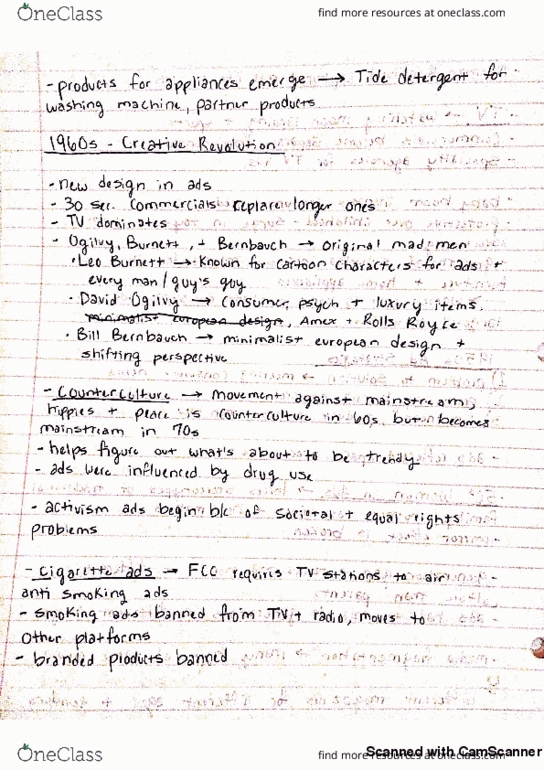 OneClass
find more resources at oneclass.com
- products for appliances emerge → Tide detergent for
washing machine, partner products
1960s - Creative Revolution
- new design in ads
- 30 sec. commercials replace longer ones
- TV dominates
- Ogilvy, Burnett, + Bernbauch → original mad men
• Leo Burnett → Known for cartoon characters for ads +
every man / guy's guy
• David Ogilvy → consumer psych + luxury items,
minimalist european design, Amex + Rolls Royce
• Bill Bernbauch → minimalist european design +
shifting perspective
- Counterculture → movement against mainstream,
hippies + peace is counterculture in 60s, but becomes
mainstream in 70s
- helps figure out what's about to be trendy
- ads were influenced by drug use
- activism ads begin b/c of societal + equal rights
problems
- cigarette ads → FCC requires TV stations to air
anti smoking ads
- smoking ads banned from TV + radio, moves to
other platforms
- branded products banned
OneClass
find more resources at oneclass.com
Scanned with CamScanner